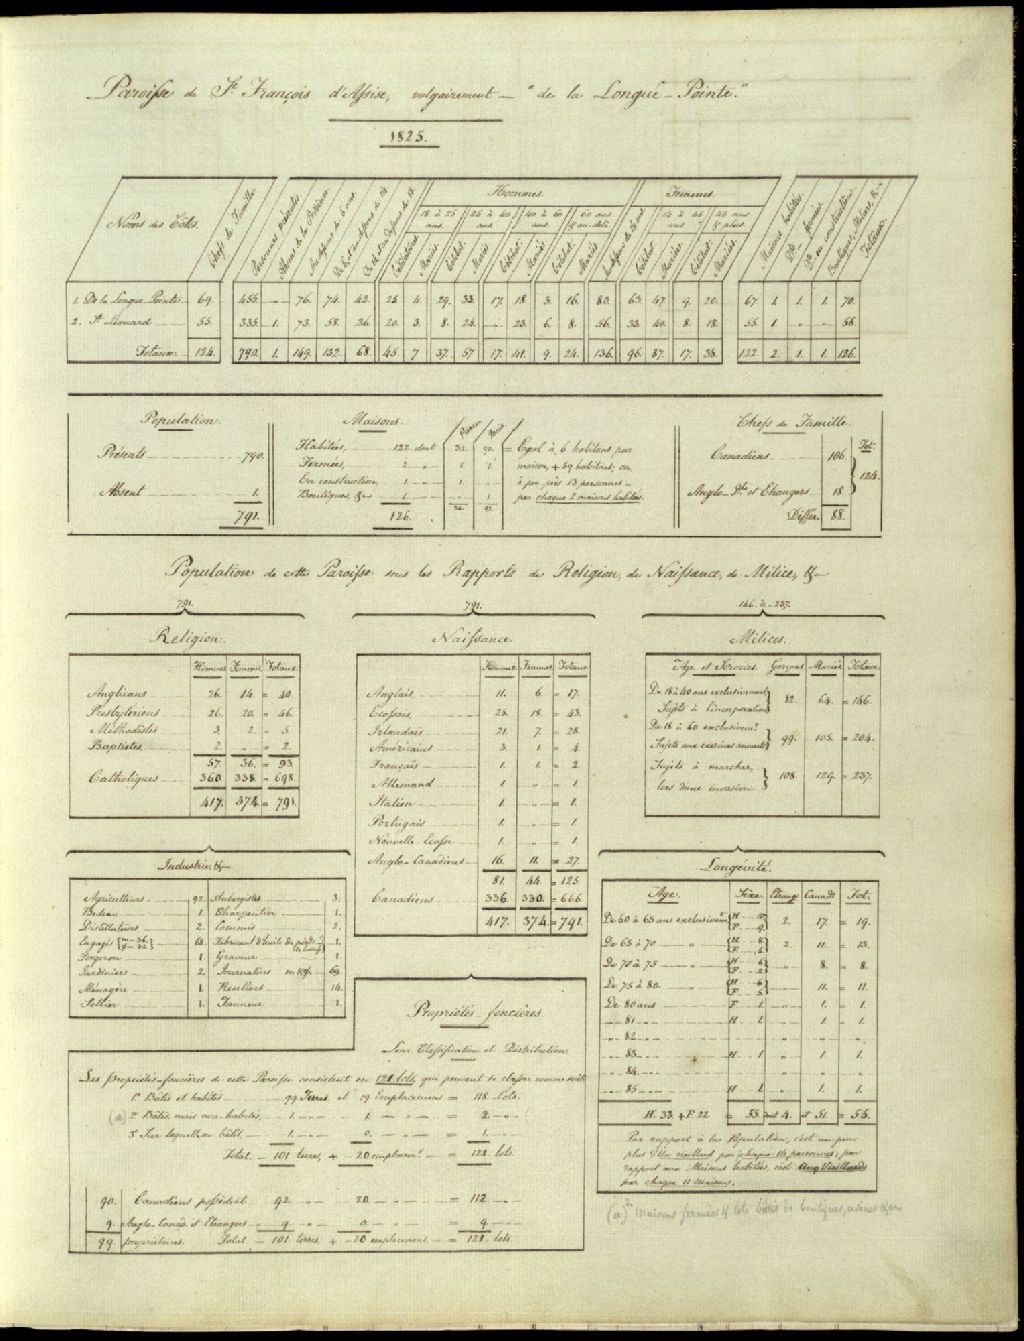 Paroisse de St. François d'Assise, vulgairement — "de la Longue-Pointe."
1825.
Noms des Côtes. Chefs de Famille Personnes présentes Absens de la Province Au dessous de 6 ans De 6 et au dessous de 14 De 14 et au dessous de 18 Hommes. Femmes. Maisons habitées Dto. fermées Dto. en construction Boutiques, Moulins, &c. Totaux.
18 à 25 ans. 25 à 40 ans. 40 à 60 ans. 60 ans & au-delà. 14 à 45 ans. 45 ans & plus.
Mariés. Célibat. Mariés Célibat. Mariés Célibat. Mariés Célibat. Mariées Célibat. Mariées.
1. De la Longue Pointe 69. 455. „ 76. 74. 42. 25. 4. 29. 33. 17. 18. 3. 16. 80. 63. 47. 9. 20. 67. 1. 1. 1. 70.
2. St. Léonard 55. 335. 1. 73. 58. 26. 20. 3. 8. 24. „ 23. 6. 8. 56. 33. 40. 8. 18. 55. 1 „ „ 56.
Totaux. 124. 790. 1. 149. 132. 68. 45. 7 37. 57 17. 41. 9. 24. 136. 96. 87. 17. 38. 122 2. 1. 1. 126.
Population.
Présents 790.
Absent 1.
791.
Maisons.
Pierre Bois
Habitées, 122 dont 32. 90. = Egal à 6 habitans par
Fermées, 2 „ 1. 1. maison, + 59 habitans; ou,
En construction, 1 „ 1. „ à peu près 13 personnes —
Boutiques, &c 1 „ „ 1. par chaque 2 maisons habitées.
126. 34. 92.
Chefs de Famille.
Tot:
Canadiens 106.
124.
Anglo-Dto. et Etrangers 18
Differ. 88.
Population de cette Paroisse sous les Rapports de Religion, de Naissance, de Milice, &c
791.
Religion.
Hommes Femmes Totaux
Anglicans 26. 14. = 40.
Presbytériens 26. 20. = 46.
Méthodistes 3. 2. = 5.
Baptistes 2. „ = 2.
57. 36. = 93.
Catholiques 360. 338. = 698.
417. 374. = 791.
791.
Naissance.
Hommes. Femmes. Totaux
Anglais 11. 6. = 17.
Ecossais 25. 18. = 43.
Irlandais 21. 7. = 28.
Américains 3. 1. = 4.
Français 1. 1. = 2.
Allemand 1. „ = 1.
Italien 1. „ = 1.
Portugais 1. „ = 1.
Nouvelle Ecosse 1. „ = 1.
Anglo-Canadiens 16. 11. = 27.
81. 44. = 125
Canadiens 336. 330. = 666.
417. 374. = 791.
146. à 237.
Milices.
Age et Services. Garçons Mariés Totaux
De 18 à 40 ans exclusivement
Sujets à l'incorporation 82. 64. = 146.
De 18 à 60 exclusivemt.
Sujets aux exercices annuels 99. 105. = 204.
Sujets à marcher,
lors d'une invasion 108. 129. = 237.
Industrie &c
Agriculteurs 92. Aubergistes 3.
Bedeau 1. Charpentier 1.
Distillateurs 2. Commis 2.
Engagés 68. Fabricant d'huile de pieds de boeufs 1.
Forgeron 1. Graveur 1.
Jardiniers 2. Journaliers 69.
Ménagère 1. Rentiers 14.
Sellier 1. Tanneur 1.
Longévité.
Age. Sexe. Etrange Canads. Tot:
De 60 à 65 ans exclusivemt. H — 10 F — 9 2. 17. = 19.
De 65 à 70 „ H — 8 F — 5 2. 11. = 13.
De 70 à 75 „ H — 6 F — 2 „ 8. = 8.
De 75 à 80. „ H — 6 F — 5 „ 11. = 11.
De 80 ans F 1. „ 1. = 1.
„ 81 H 1. „ 1. 1.
„ 82 „ „ „
„ 83 H 1. „ 1. 1.
„ 84 „ „ „
„ 85 H 1. „ 1. = 1.
H. 33 + F. 22 = 55. dont 4. et 51. = 55.
Par rapport à la Population, c'est un peu
plus d'Un vieillard par chaque 14 personnes; par
rapport aux Maisons habitées, c'est cinq Vieillards
par chaque 11 maisons.
Propriétés-foncières
Leur Classification et Distribution.
Les propriétés-foncières de cette Paroisse consistent en 121 lots, qui peuvent se classer comme suit:
1o. Bâtis et habités 99 Terres et 19 Emplacemens = 118 Lots.
(a) 2o. Bâtis, mais non-habités, 1. 1. = 2.
3o. Sur lesquels on bâtit 1. 0. = 1.
Total — 101 terres, + 20 emplacemens = 121 lots.
90. Canadiens possédant 92 20 = 112
9. Anglo-Canad. et Etrangers 9. 0. = 9.
99. propriétaires. Total — 101 terres, + 20 emplacemens, = 121 lots.
(a) Maisons fermées & lots bâtis de boutiques, usines &c